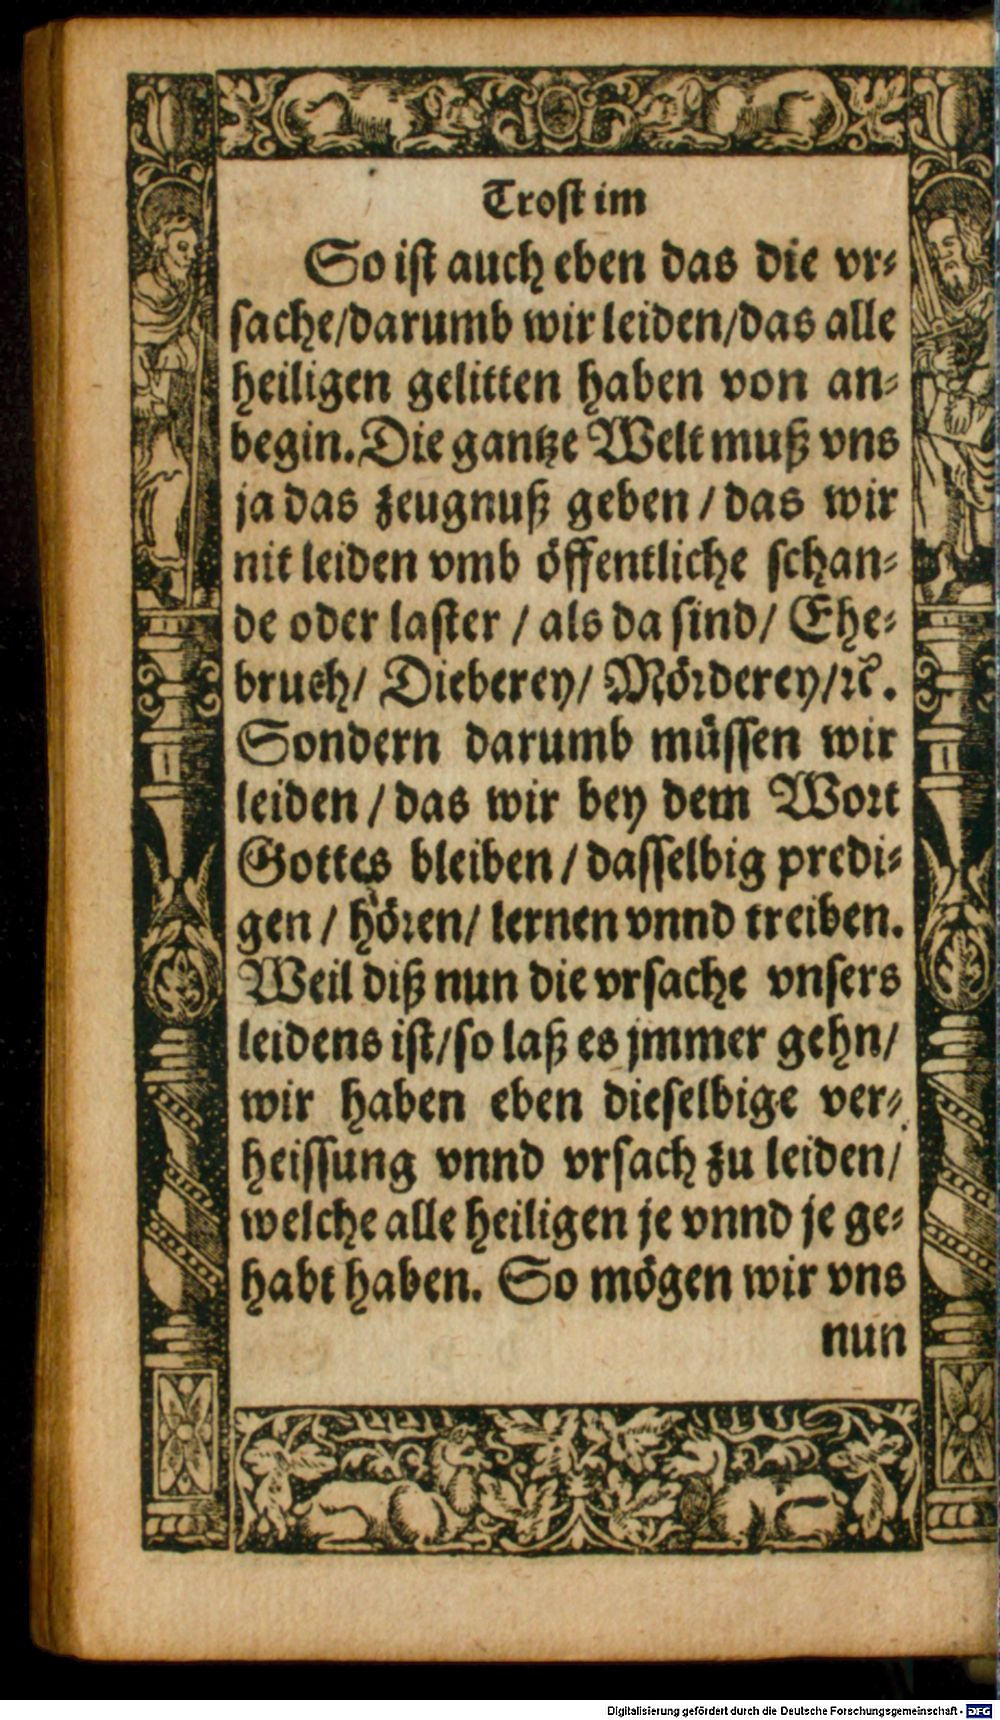 Trost im
So ist auch eben das die vr⸗
sache/darumb wir leiden/das alle
heiligen gelitten haben von an⸗
begin. Die gantze Welt muß vns
ja das zeugnuß geben / das wir
nit leiden vmb öffentliche schan⸗
de oder laster / als da sind/ Ehe⸗
bruch/ Dieberey/ Mörderey/ꝛc.
Sondern darumb müssen wir
leiden / das wir bey dem Wort
Gottes bleiben / dasselbig predi⸗
gen / hören/ lernen vnnd treiben.
Weil diß nun die vrsache vnsers
leidens ist/so laß es jmmer gehn/
wir haben eben dieselbige ver⸗
heissung vnnd vrsach zu leiden/
welche alle heiligen je vnnd je ge⸗
habt haben. So mögen wir vns
nun
Digitalisierung gefördert durch die Deutsche Forschungsgemeinschaft - DFG